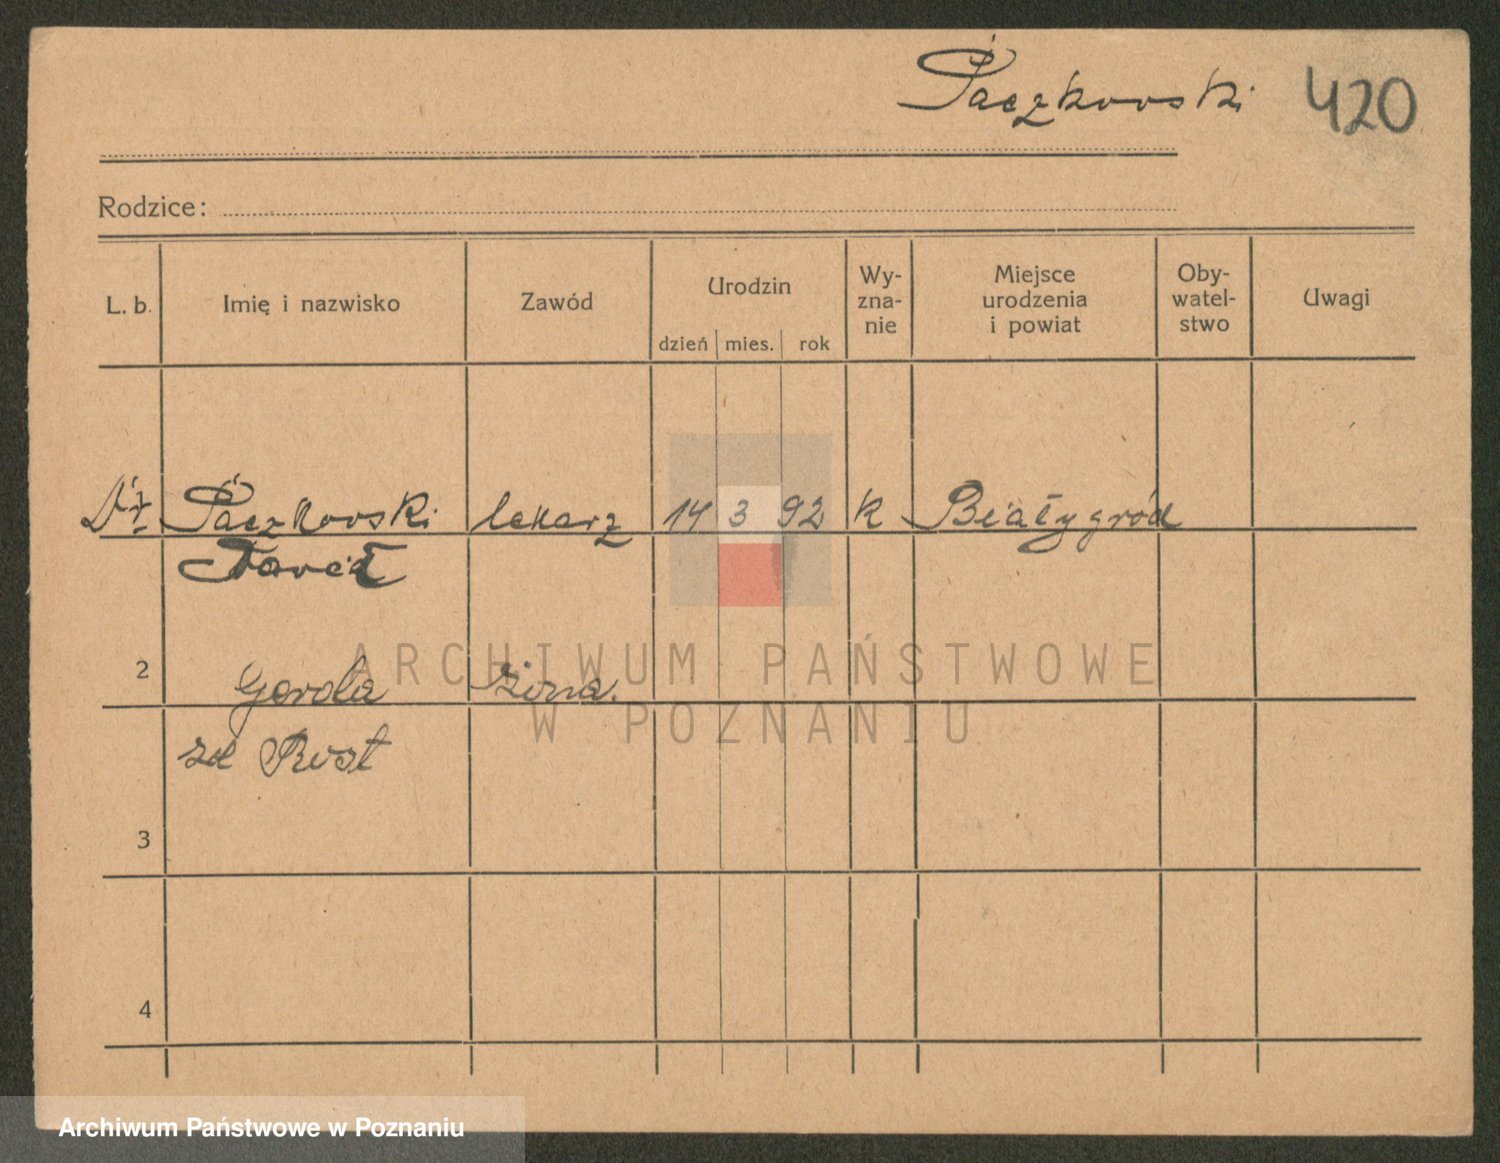 Paczkowski 420
Rodzice:
L. b. Imię i nazwisko Zawód Urodzin dzień mies. rok Wy-zna-nie Miejsce urodzenia i powiat Oby-watel-stwo Uwagi
Paczkowski lekarz 14 3 92 k Białygród
2 Gerda żona.
zd Rost
3
4
ARCHIWUM PAŃSTWOWE
W POZNANIU
Archiwum Państwowe w Poznaniu